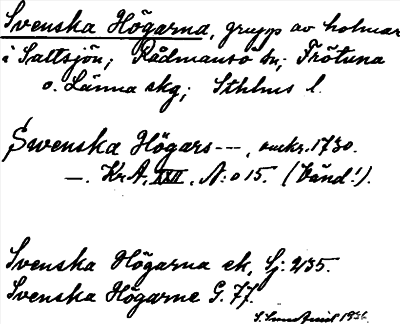 Svenska Högarna, grupp av holmar
i Saltsjön; Rådmansö sn; Frötuna
o. Länna skg; Sthlms l.
Swenska Högars---, omkr. 1730.
—. KrA, XXII, N:o 15. (Vänd!).
Svenska Högarna ek, Sj. 235.
Svenska Högarne G. 77.
1936